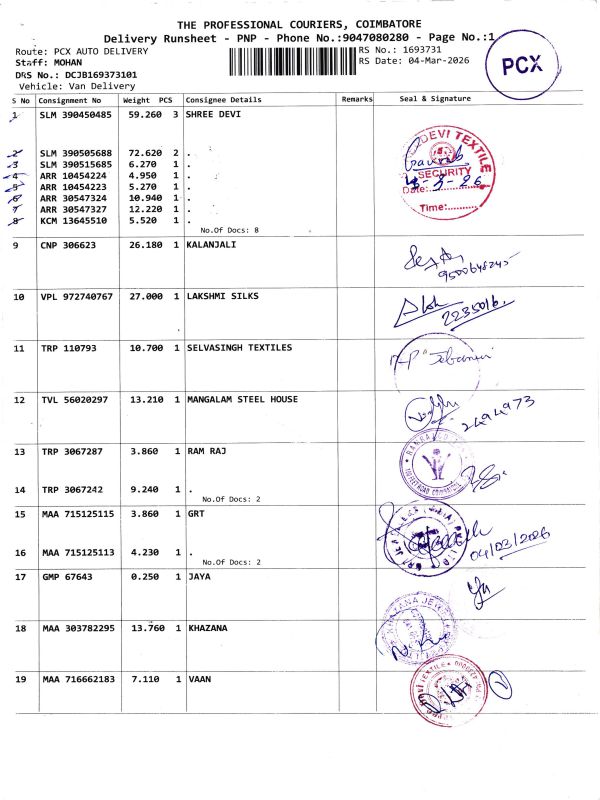 THE PROFESSIONAL COURIERS, COIMBATORE
Delivery Runsheet - PNP - Phone No.:9047080280 - Page No.:1
Route: PCX AUTO DELIVERY
RS No.: 1693731
Staff: MOHAN
RS Date: 04-Mar-2026
PCX
DRS No.: DCJB169373101
Vehicle: Van Delivery
S No Consignment No Weight PCS Consignee Details Remarks Seal & Signature
1 SLM 390450485 59.260 3 SHREE DEVI
DEVI TEXTILE
2 SLM 390505688 72.620 2 .
3 SLM 390515685 6.270 1 .
4 ARR 10454224 4.950 1 .
SECURITY
5 ARR 10454223 5.270 1 .
Date:
6 ARR 30547324 10.940 1 .
7 ARR 30547327 12.220 1 .
Time:
8 KCM 13645510 5.520 1 .
No.Of Docs: 8
9 CNP 306623 26.180 1 KALANJALI
10 VPL 972740767 27.000 1 LAKSHMI SILKS
2235016
11 TRP 110793 10.700 1 SELVASINGH TEXTILES
12 TVL 56020297 13.210 1 MANGALAM STEEL HOUSE
2494973
13 TRP 3067287 3.860 1 RAM RAJ
14 TRP 3067242 9.240 1 .
No.Of Docs: 2
15 MAA 715125115 3.860 1 GRT
04/03/2026
16 MAA 715125113 4.230 1 .
No.Of Docs: 2
17 GMP 67643 0.250 1 JAYA
18 MAA 303782295 13.760 1 KHAZANA
19 MAA 716662183 7.110 1 VAAN
1